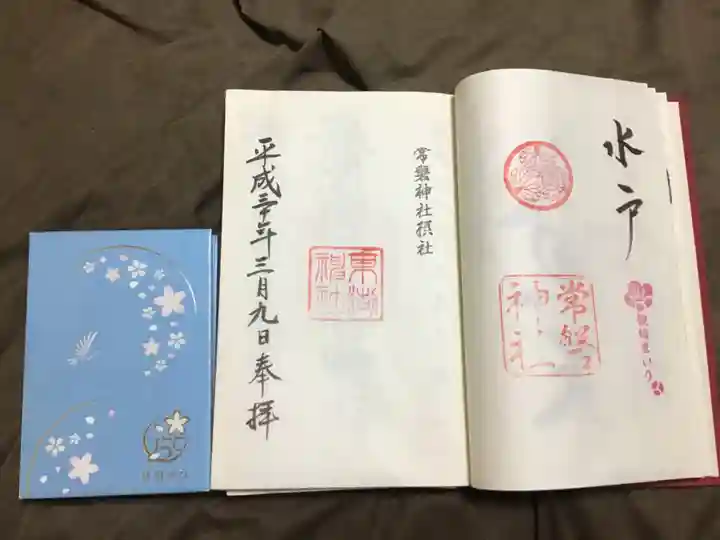 水戸
常磐
神社
観梅まいり
常磐神社摂社
東湖
神社
平成三十年三月九日奉拝